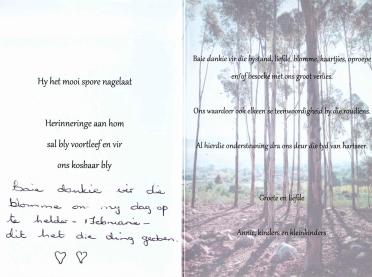 Hy het mooi spore nagelaat
Herinneringe aan hom
sal bly voortleef en vir
ons kosbaar bly
Baie dankie vir die
blomme om my dag op
te helder -
dit het die ding gedoen.
Baie dankie vir die bystand, liefde, blomme, kaartjies, oproepe
en/of besoeke met ons groot verlies.
Ons waardeer ook elkeen se teenwoordigheid by die roudiens.
Al hierdie ondersteuning dra ons deur die tyd van hartseer.
Groete en liefde
Annie, kinders en kleinkinders